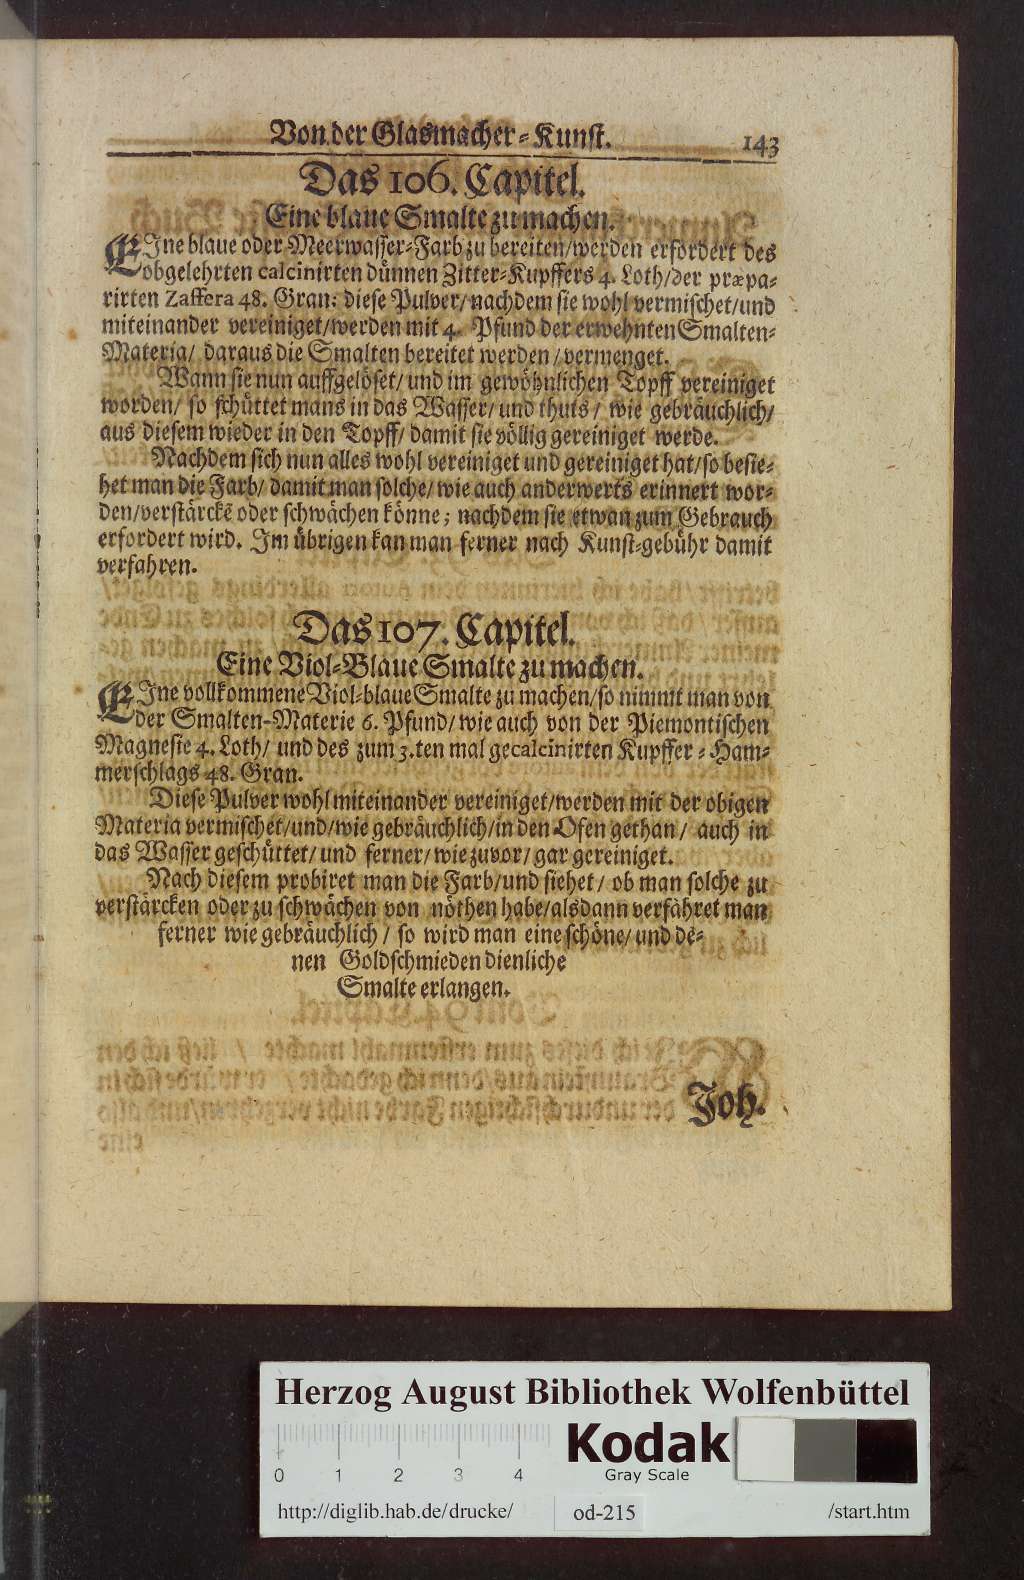 Von der Glasmacher-Kunst. 143
Das 106. Capitel.
Eine blaue Smalte zu machen.
EIne blaue oder Meerwasser-Farb zu bereiten/werden erfordert des
obgelehrten calcinirten dünnen Zitter-Kupffers 4. Loth/der præpa-
rirten Zaffera 48. Gran: diese Pulver/nachdem sie wohl vermischet/und
miteinander vereiniget/werden mit 4. Pfund der erwehnten Smalten-
Materia/ daraus die Smalten bereitet werden/vermenget.
Wann sie nun auffgelöset/und im gewöhnlichen Topff vereiniget
worden/ so schüttet mans in das Wasser/ und thuts/ wie gebräuchlich/
aus diesem wieder in den Topff/ damit sie völlig gereiniget werde.
Nachdem sich nun alles wohl vereiniget und gereiniget hat/so besie-
het man die Farb/ damit man solche/ wie auch anderwerts erinnert wor-
den/verstärckẽ oder schwächen könne; nachdem sie etwan zum Gebrauch
erfordert wird. Im übrigen kan man ferner nach Kunst-gebühr damit
verfahren.
Das 107. Capitel.
Eine Viol-Blaue Smalte zu machen.
EIne vollkommene Viol-blaue Smalte zu machen/so nimmt man von
der Smalten-Materie 6. Pfund/ wie auch von der Piemontischen
Magnesie 4. Loth/ und des zum 3.ten mal gecalcinirten Kupffer-Ham-
merschlags 48. Gran.
Diese Pulver wohl miteinander vereiniget/werden mit der obigen
Materia vermischet/und/wie gebräuchlich/in den Ofen gethan/ auch in
das Wasser geschüttet/ und ferner/ wie zuvor/ gar gereiniget.
Nach diesem probiret man die Farb/und siehet/ ob man solche zu
verstärcken oder zu schwächen von nöthen habe/alsdann verfähret man
ferner wie gebräuchlich/ so wird man eine schöne/ und de-
nen Goldschmieden dienliche
Smalte erlangen.
Joh.
Herzog August Bibliothek Wolfenbüttel
Kodak
0 1 2 3 4
Gray Scale
http://diglib.hab.de/drucke/ od-215 /start.htm